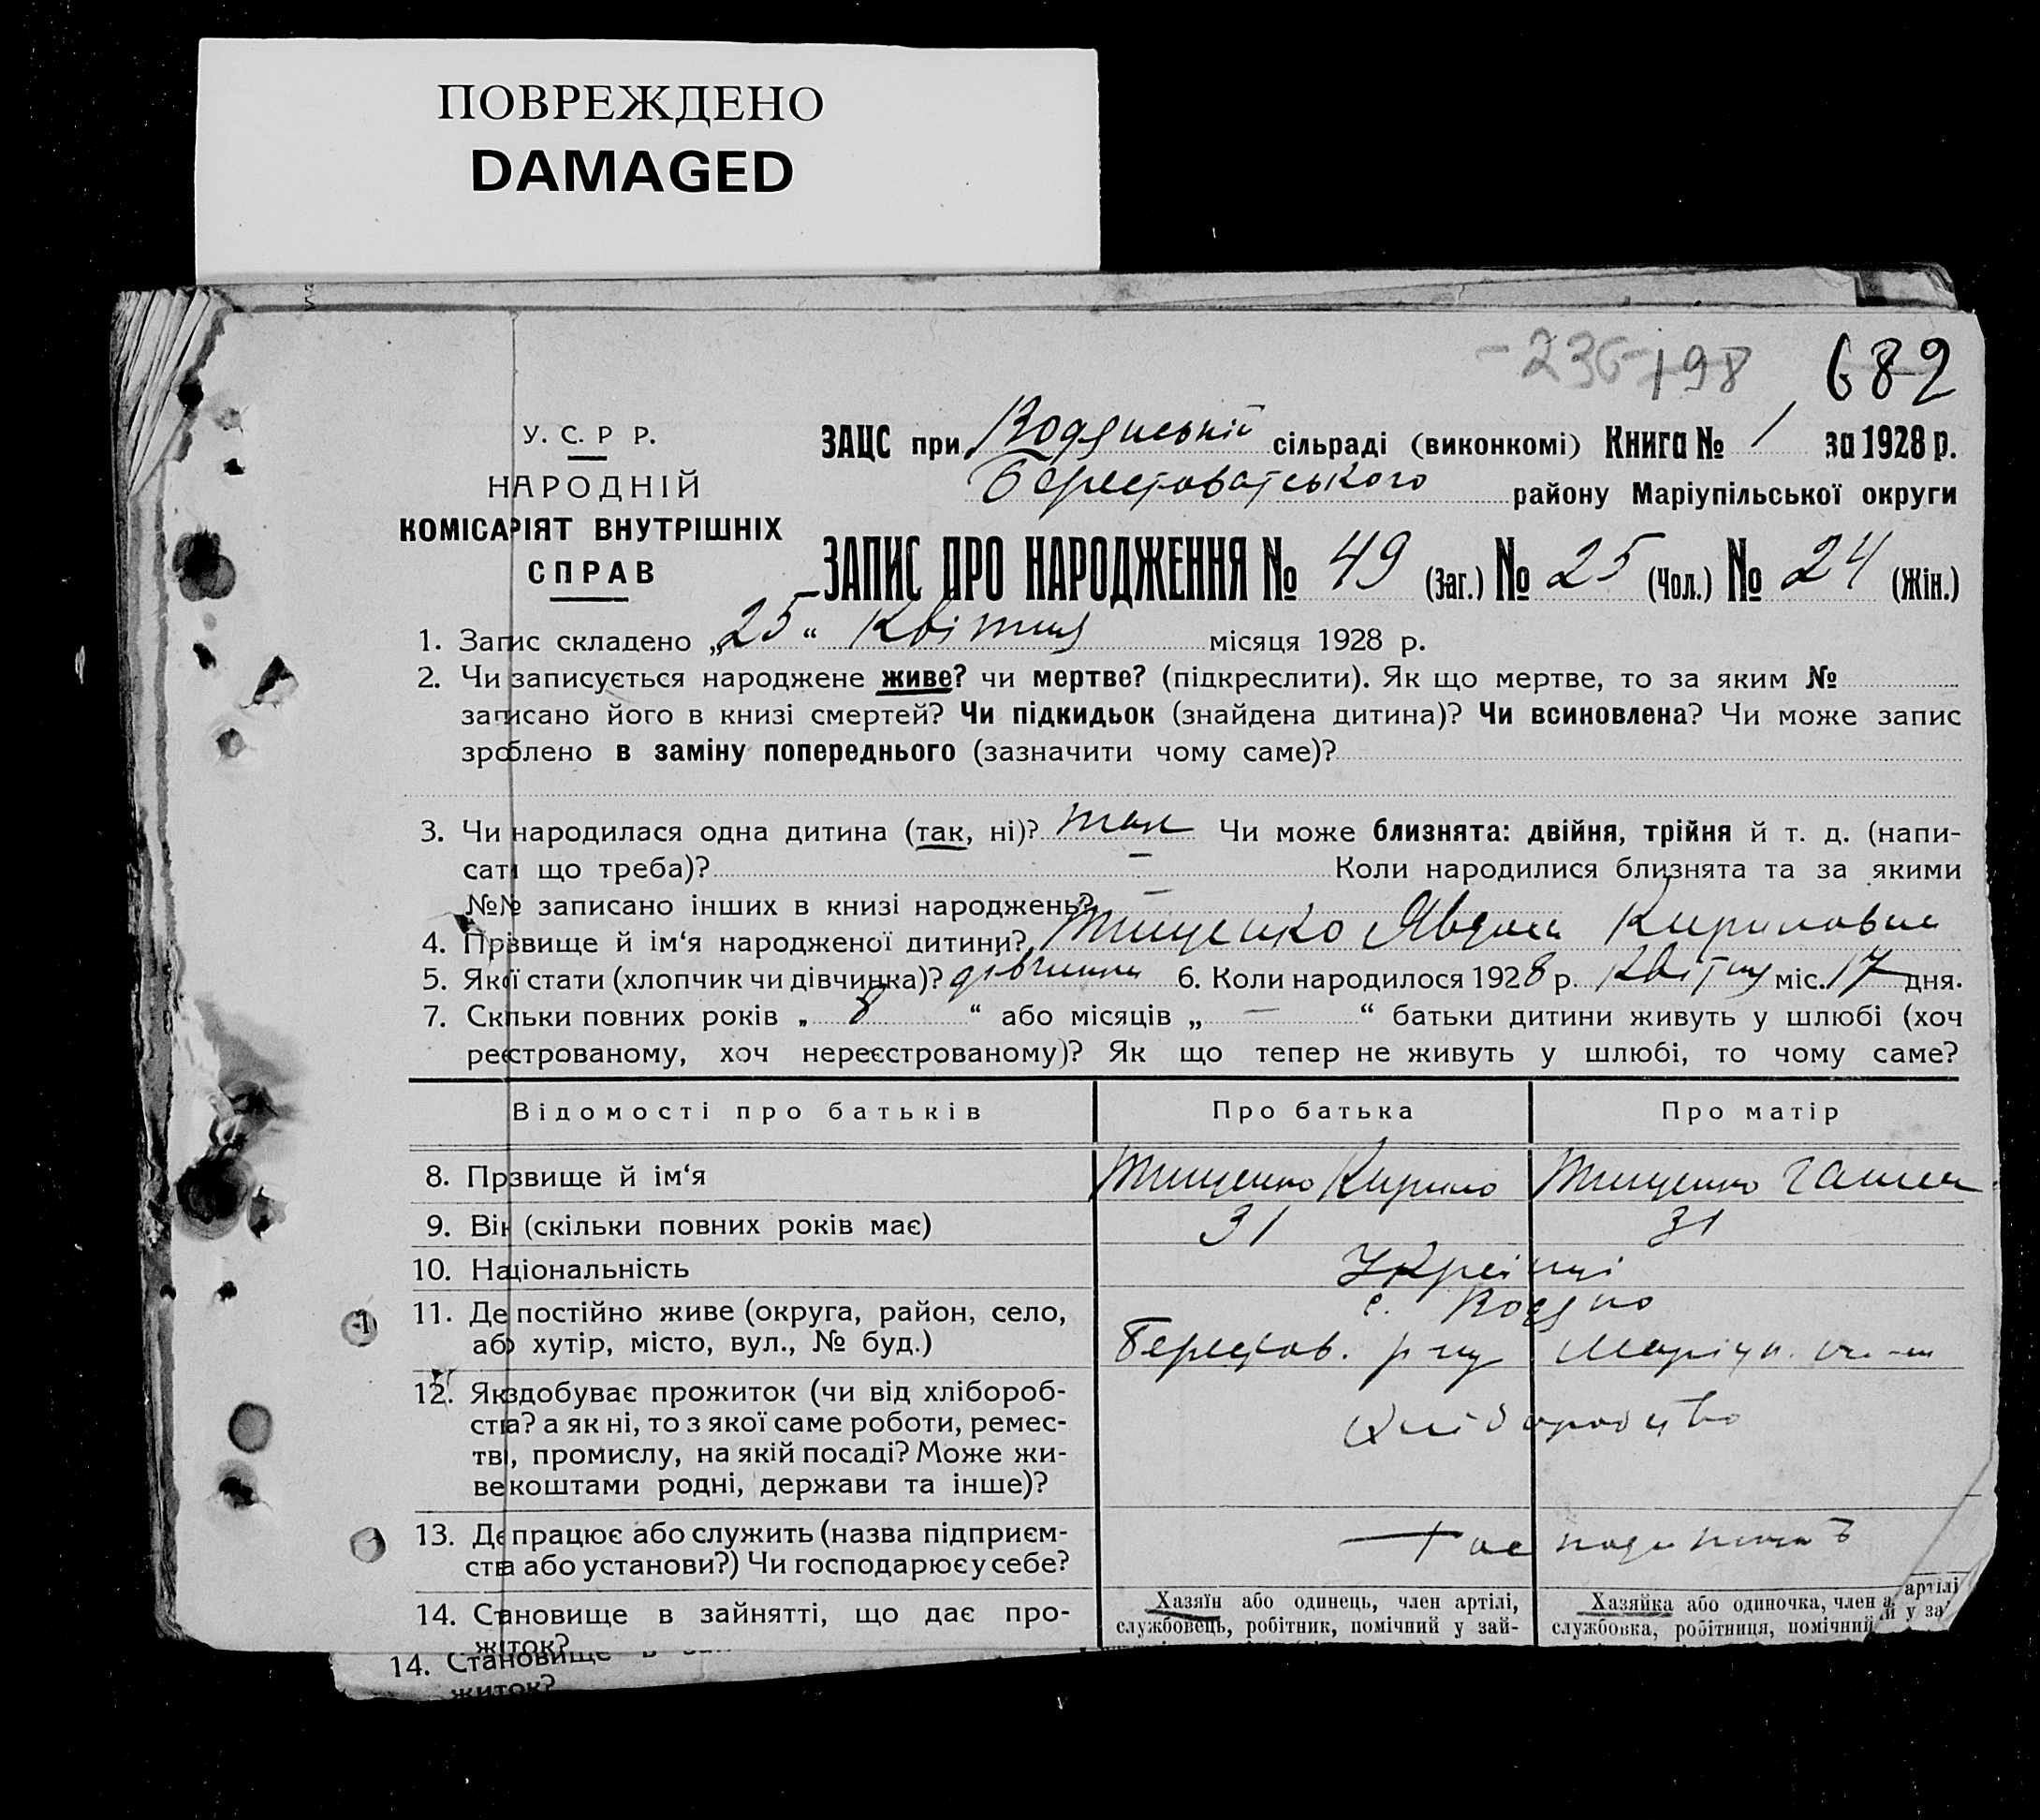 ПОВРЕЖДЕНО
DAMAGED
-236- 198 682
У. С. Р Р.
НАРОДНІЙ
КОМІСАРІЯТ ВНУТРІШНІХ
СПРАВ
ЗАЦС при Водянській сільраді (виконкомі) Книга № 1 за 1928 р.
Берестоватського району Маріупільської округи
ЗАПИС ПРО НАРОДЖЕННЯ № 49 (Заг.) № 25 (Чол.) № 24 (Жін.)
1. Запис складено „25“ Квітня місяця 1928 р.
2. Чи записується народжене живе? чи мертве? (підкреслити). Як що мертве, то за яким №
записано його в книзі смертей? Чи підкидьок (знайдена дитина)? Чи всиновлена? Чи може запис
зроблено в заміну попереднього (зазначити чому саме)?
3. Чи народилася одна дитина (так, ні)? так Чи може близнята: двійня, трійня й т. д. (напи-
сати що треба)? — Коли народилися близнята та за якими
№№ записано інших в книзі народжень? —
4. Прізвище й ім‘я народженої дитини? Тищенко Явдоха Кириловна
5. Якої стати (хлопчик чи дівчинка)? дівчинка 6. Коли народилося 1928 р. Квітня міс. 17 дня.
7. Скільки повних років „ 8 “ або місяців „ — “ батьки дитини живуть у шлюбі (хоч
реєстрованому, хоч нереєстрованому)? Як що тепер не живуть у шлюбі, то чому саме?
Відомості про батьків Про батька Про матір
8. Прізвище й ім‘я Тищенко Кирило Тищенко Ганна
9. Вік (скільки повних років має) 31 31
10. Національність Українці
11. Де постійно живе (округа, район, село, с. Водяно
або хутір, місто, вул., № буд.) Берестов. р-ну Маріуп. ок-ги
12. Як здобуває прожиток (чи від хлібороб-
ства? а як ні, то з якої саме роботи, ремес- Хліборобство
тві, промислу, на якій посаді? Може жи-
ве коштами родні, держави та інше)?
13. Де працює або служить (назва підприєм-
ства або установи?) Чи господарює у себе?
14. Становище в зайнятті, що дає про- Хазяїн або одинець, член артілі, Хазяйка або одиночка, член артілі
житок? службовець, робітник, помічний у зай- службовка, робітниця, помічний у за
14. Становище в
житок?